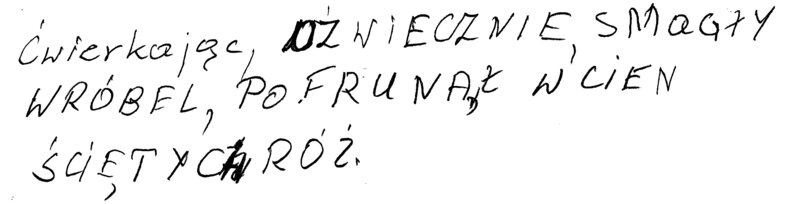 Ćwierkając, DŹWIECZNIE, SMAGŁY
WRÓBEL, POFRUNĄŁ W CIEŃ
ŚCIĘTYCH RÓŻ.